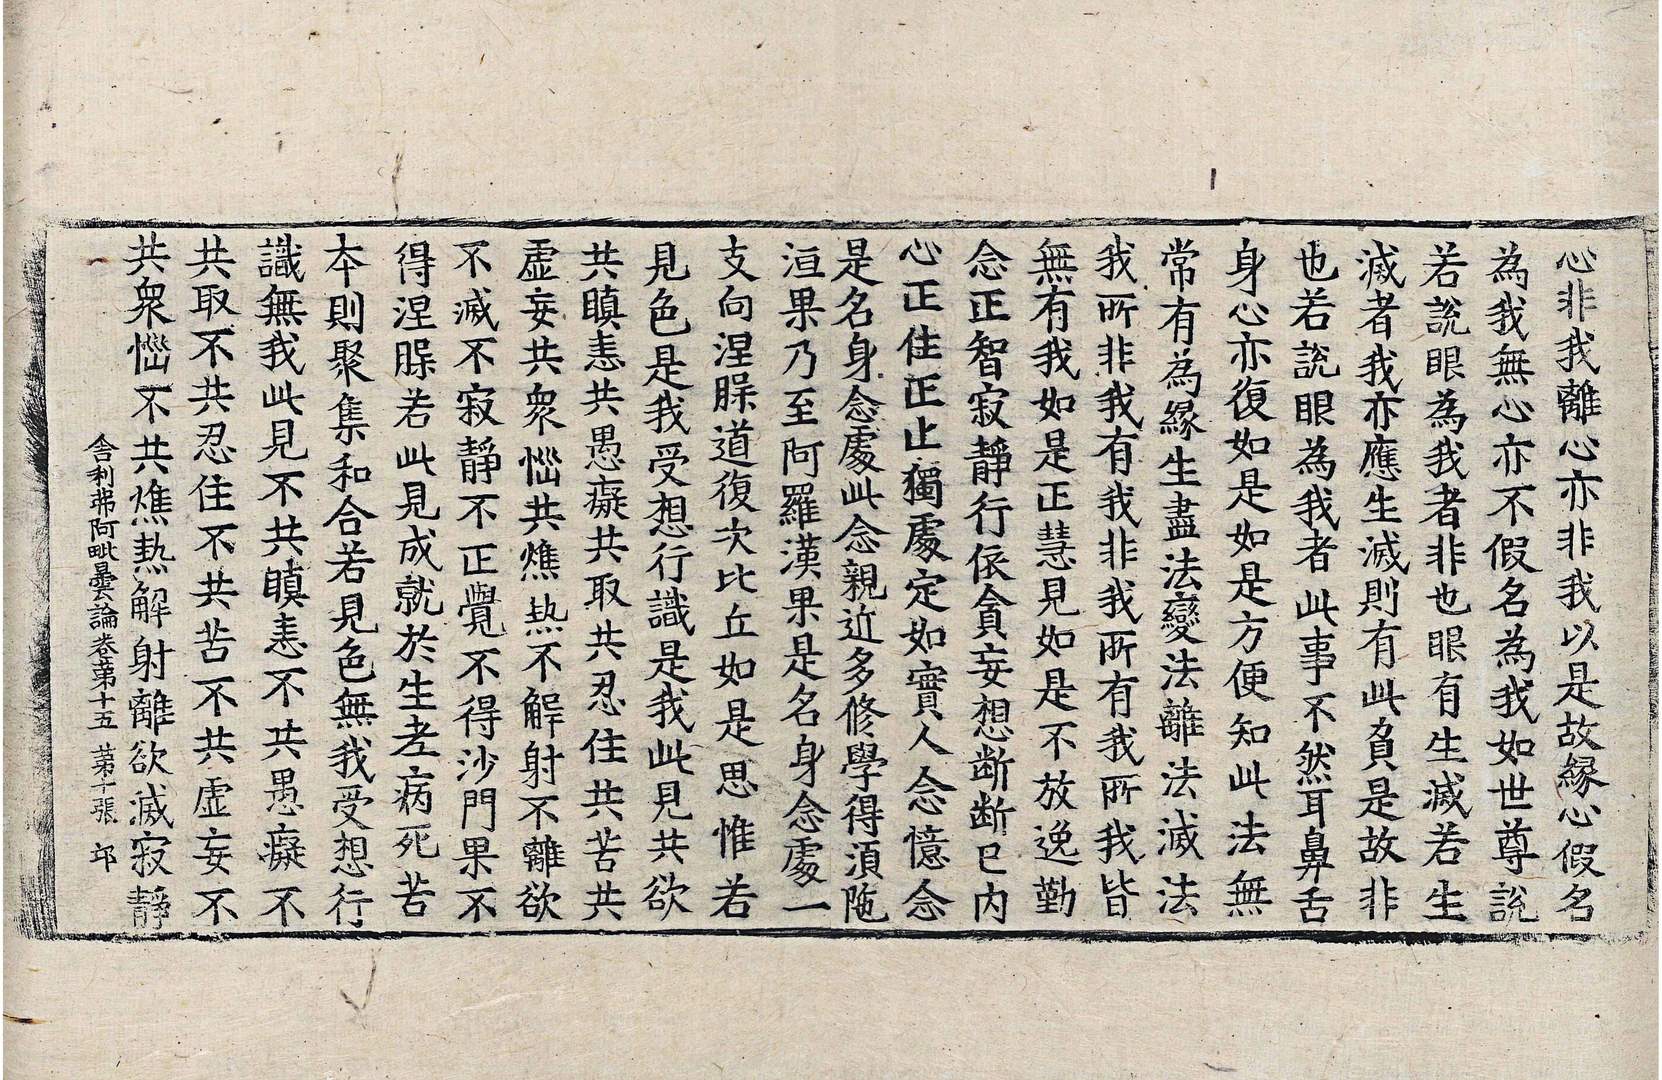 心非我離心亦非我以是故緣心假名
為我無心亦不假名為我如世尊說
若說眼為我者非也眼有生滅若生
滅者我亦應生滅則有此負是故非
也若說眼為我者此事不然耳鼻舌
身心亦復如是如是方便知此法無
常有為緣生盡法變法離法滅法
我所非我有我非我所有我所我皆
無有我如是正慧見如是不放逸勤
念正智寂靜行依貪妄想断断已內
心正住正止獨處定如實人念憶念
是名身念處此念親近多修學得湏陁
洹果乃至阿羅漢果是名身念處一
支向涅槃道復次比丘如是思惟若
見色是我受想行識是我此見共欲
共瞋恚共愚癡共取共忍住共苦共
虛妄共衆惱共燋熱不解射不離欲
不滅不寂靜不正覺不得沙門果不
得涅槃若此見成就於生老病死苦
本則聚集和合若見色無我受想行
識無我此見不共瞋恚不共愚癡不
共取不共忍住不共苦不共虛妄不
共衆惱不共燋熱解射離欲滅寂靜
舎利弗阿毗曇論卷第十五 第十張 邙